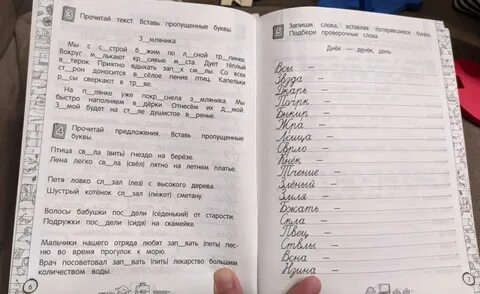 3 Прочитай текст. Вставь пропущенные буквы.
З__мляника
Мы с с__строй б__жим по л__сной тр__пинке.
Вокруг м__лькают кр__сивые м__ста. Дует тёплый
в__терок. Приятно вдыхать зап__х см__лы. Со всех
ст__рон доносится в__сёлое пение птиц. Капельки
р__сы сверкают в тр__ве.
На п__лянке уже покр__снела з__мляника. Мы
быстро наполняем в__дёрки. Отнесём их д__мой.
З__мой будет на ст__ле душистое в__ренье.
4 Прочитай предложения. Вставь пропущенные
буквы.
Птица св__ла (вить) гнездо на берёзе.
Лена легко св__ла (свёл) пятно на летнем платье.
Петя ловко сл__зал (лез) с высокого дерева.
Шустрый котёнок сл__зал (лижет) сметану.
Волосы бабушки пос__дели (седенький) от старости.
Подружки пос__дели (сидя) на скамейке.
Мальчики нашего отряда любят зап__вать (петь) пес-
ню во время прогулок к морю.
Врач посоветовал зап__вать (пить) лекарство большим
количеством воды.
6
Запиши слова, вставляя потерявшиеся буквы.
Подбери проверочные слова.
Днёк — денёк, день.
Всы —
Звзда —
Дкарь —
Погрк —
Вжкир —
Жра —
Лсица —
Сврло —
Кнёк —
Тчение —
Злёный —
Змля —
Бжать —
Скла —
Пвец —
Ствлы —
Всна —
Нзина —
7